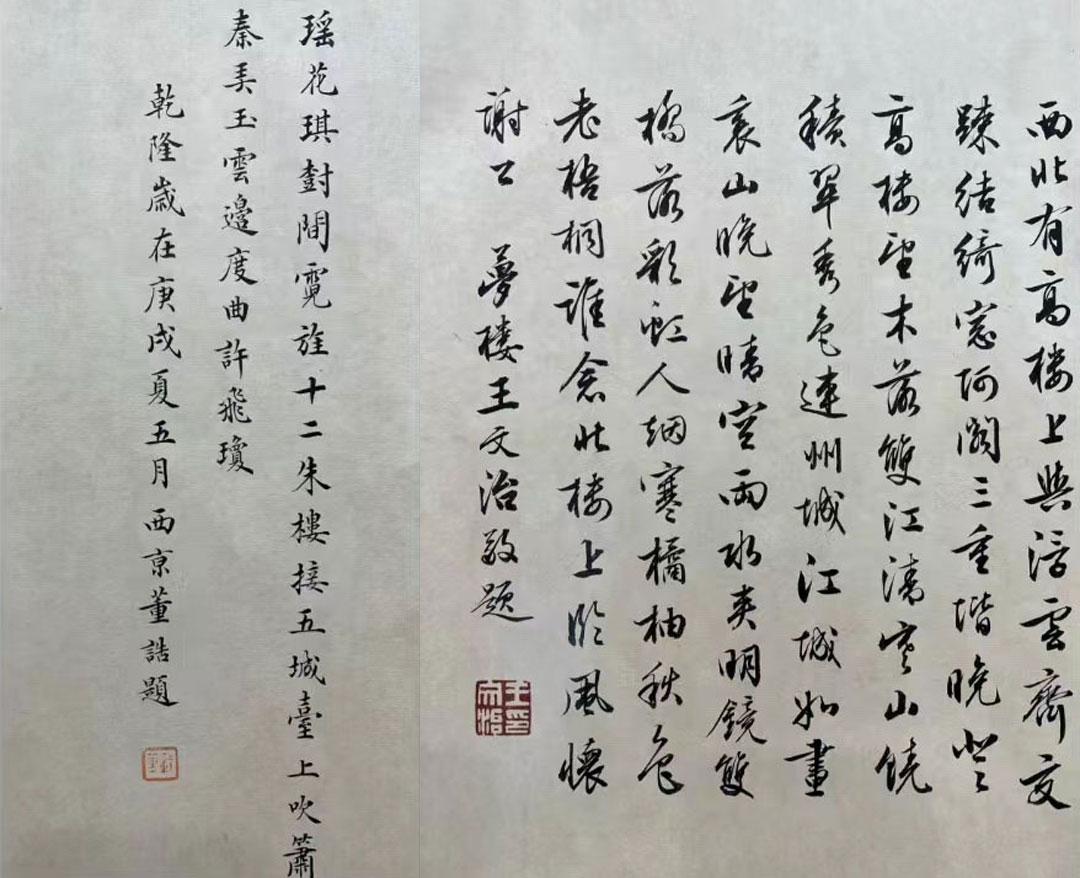 西北有高樓上與浮雲齊交
踈結綺窓阿閣三重堦晚登
高楼望木落雙江清寒山饒
積翠秀色連州城江城如畫
裏山晚望晴空兩水夾明鏡雙
橋落彩虹人烟寒橘柚秋色
老梧桐誰念北楼上臨風懷
謝公 夢楼王文治敬題
王文治印
瑶花琪樹間霓旌十二朱樓接五城臺上吹簫
秦弄玉雲邊度曲許飛瓊
乾隆歲在庚戌夏五月西京董誥題